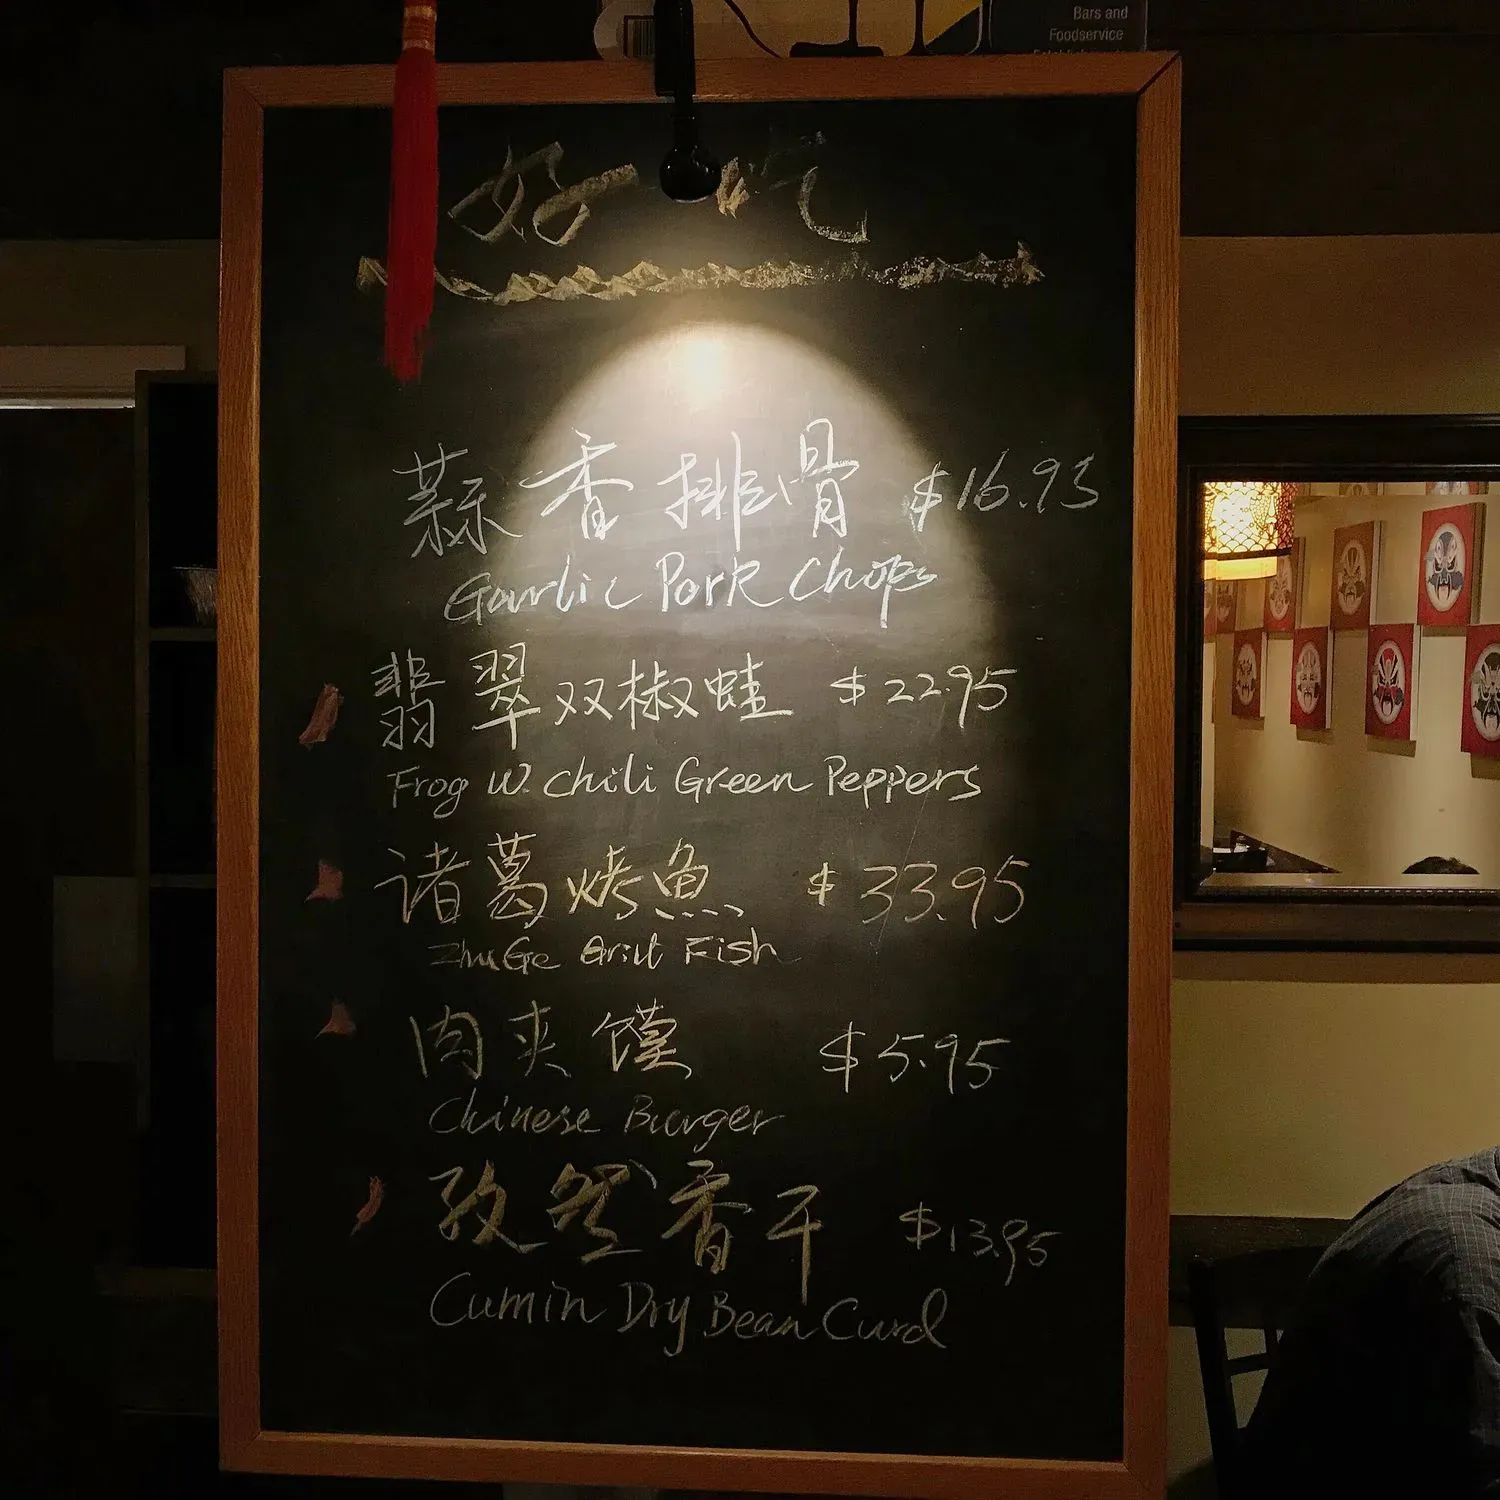 Bars and
Foodservice
好吃
蒜香排骨 $16.95
Garlic Pork Chops
翡翠双椒蛙 $22.95
Frog W. Chili Green Peppers
诸葛烤魚 $33.95
ZhuGe Grill Fish
肉夹馍 $5.95
Chinese Burger
孜然香干 $13.95
Cumin Dry Bean Curd